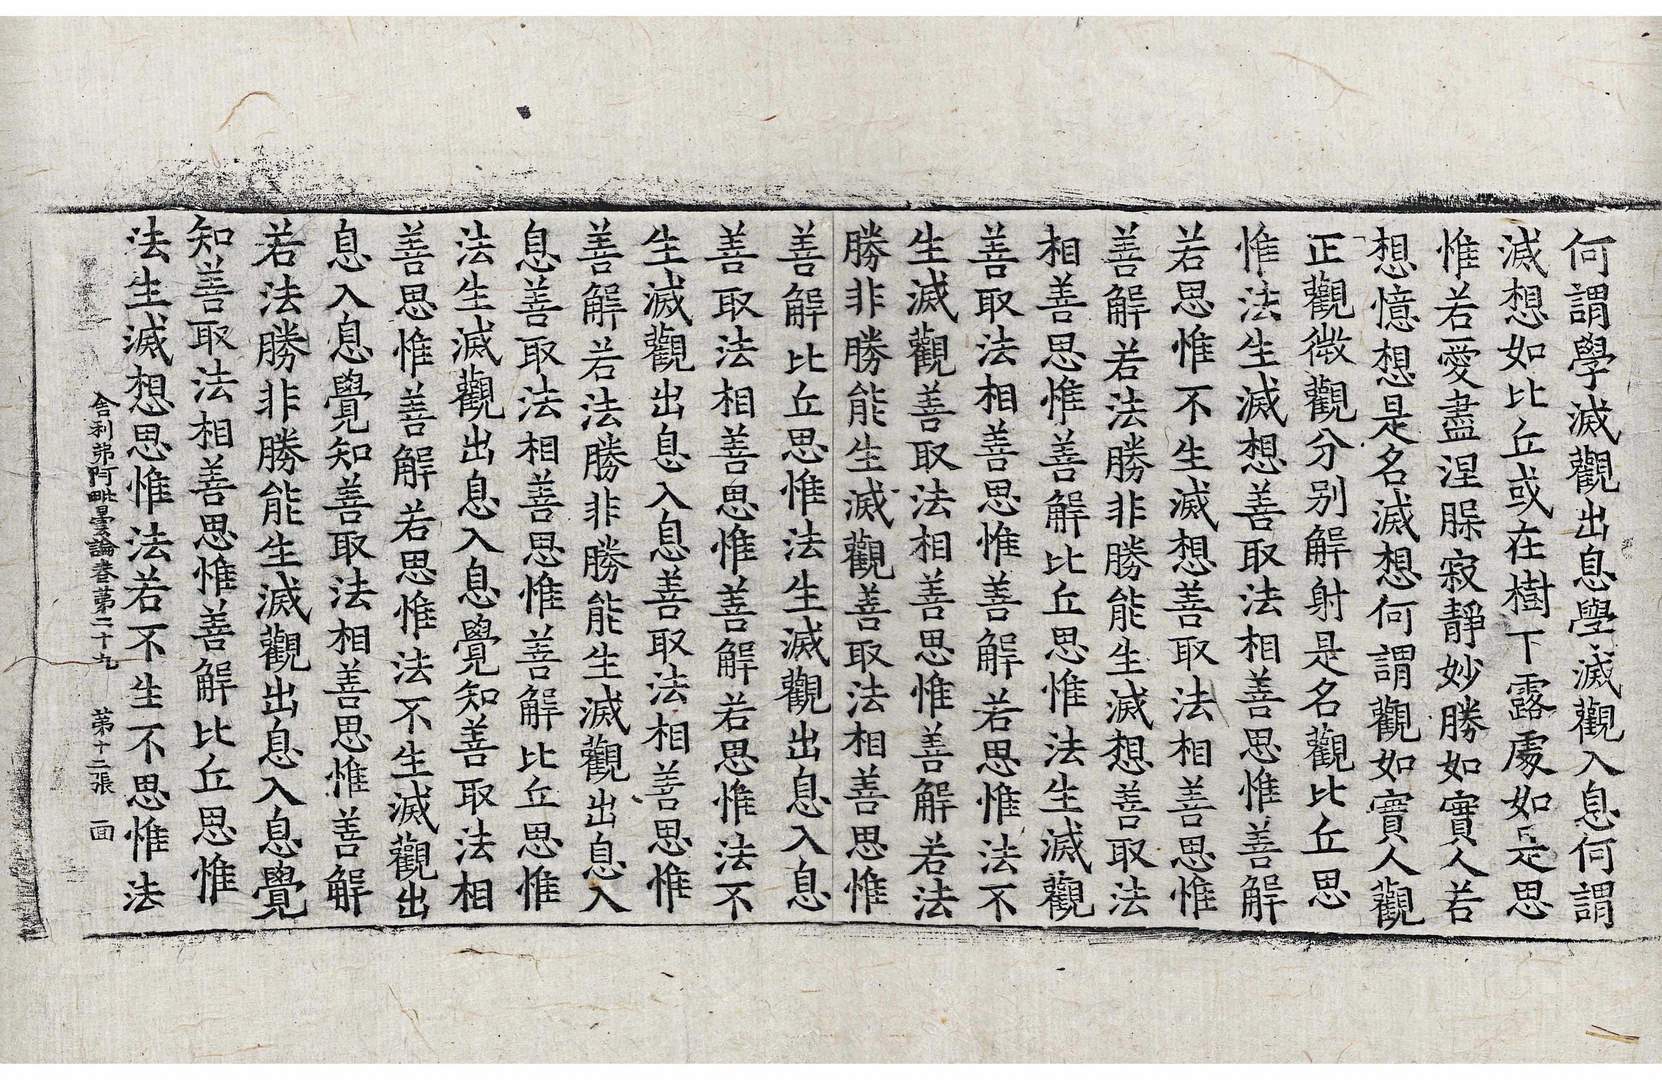 何謂學滅觀出息學滅觀入息何謂
滅想如比丘或在樹下露處如是思
惟若愛盡涅槃寂靜妙勝如實人若
想憶想是名滅想何謂觀如實人觀
正觀微觀分別解射是名觀比丘思
惟法生滅想善取法相善思惟善解
若思惟不生滅想善取法相善思惟
善解若法勝非勝能生滅想善取法
相善思惟善解比丘思惟法生滅觀
善取法相善思惟善解若思惟法不
生滅觀善取法相善思惟善解若法
勝非勝能生滅觀善取法相善思惟
善解比丘思惟法生滅觀出息入息
善取法相善思惟善解若思惟法不
生滅觀出息入息善取法相善思惟
善解若法勝非勝能生滅觀出息入
息善取法相善思惟善解比丘思惟
法生滅觀出息入息覺知善取法相
善思惟善解若思惟法不生滅觀出
息入息覺知善取法相善思惟善解
若法勝非勝能生滅觀出息入息覺
知善取法相善思惟善解比丘思惟
法生滅想思惟法若不生不思惟法
舍利弗阿毗曇論卷第二十九 第十二張 面